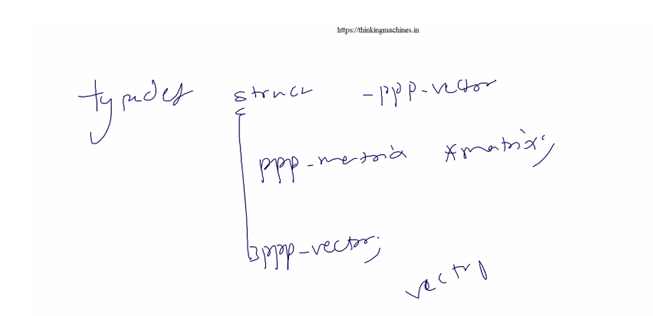 https://thinkingmachines.in
typedef struct _ppp_vector
{
ppp_matrix *matrix;
}ppp_vector;
vectr